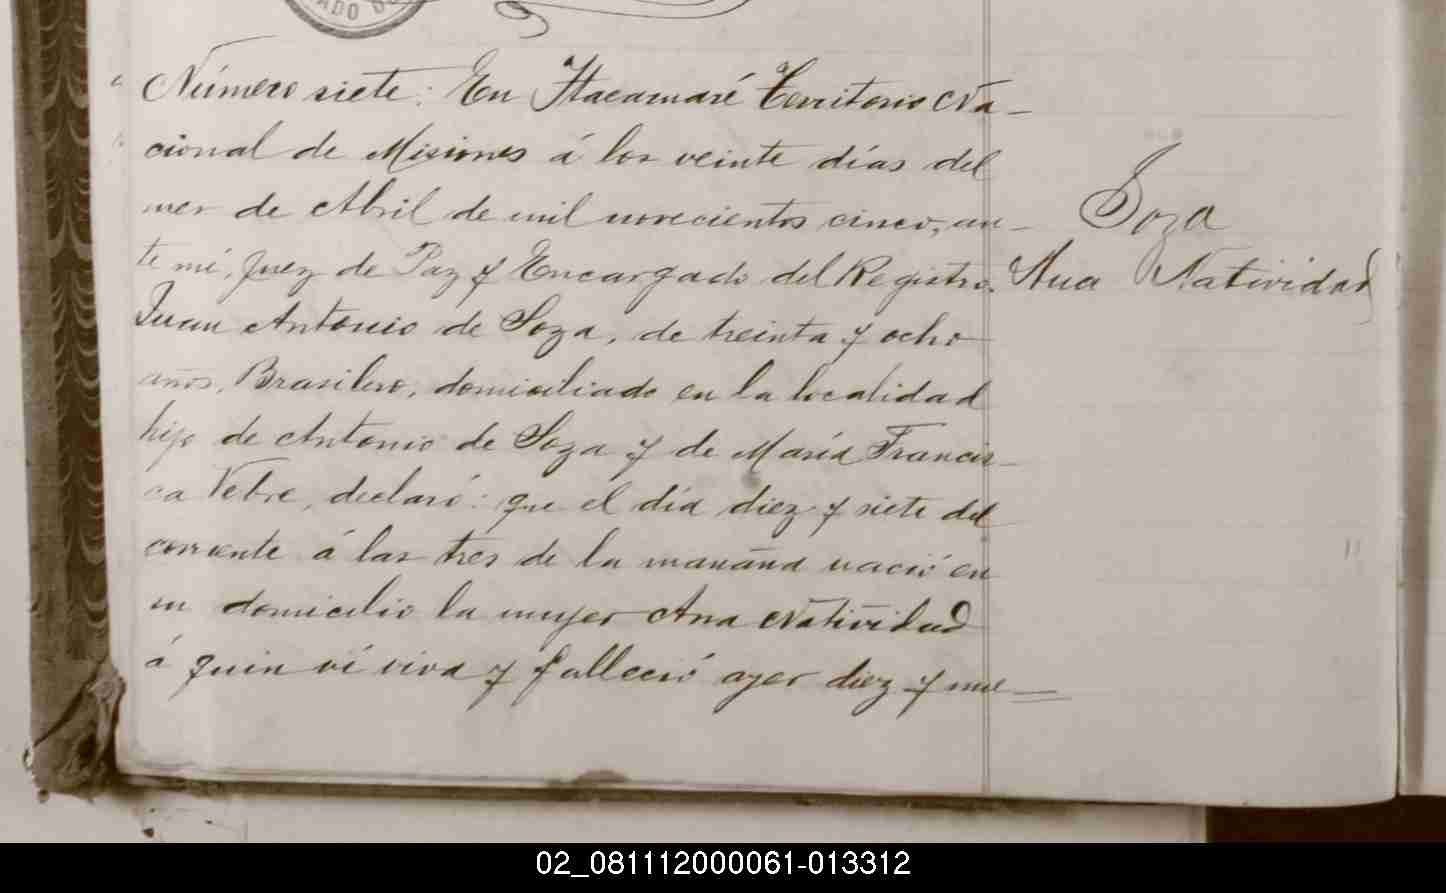 ADO D
Número siete: En Itacaruaré Territorio Na-
cional de Misiones á los veinte días del
mes de Abril de mil novecientos cinco, an-
te mi, Juez de Paz y Encargado del Registro.
Juan Antonio de Soza, de treinta y ocho
años, Brasilero, domiciliado en la localidad
hijo de Antonio de Soza y de María Francis-
ca Vebre, declaró: que el día diez y siete del
corriente á las tres de la mañana nació en
su domicilio la mujer Ana Natividad
á quien ví viva y falleció ayer diez y nue
Soza
Ana Natividad
02_081112000061-013312